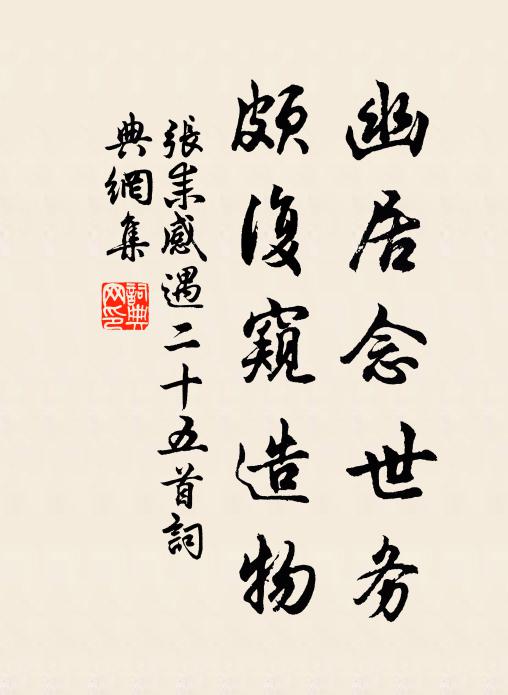 幽居念世务
頗復窺造物
張耒感遇二十五首詞
典網集
詞典網印